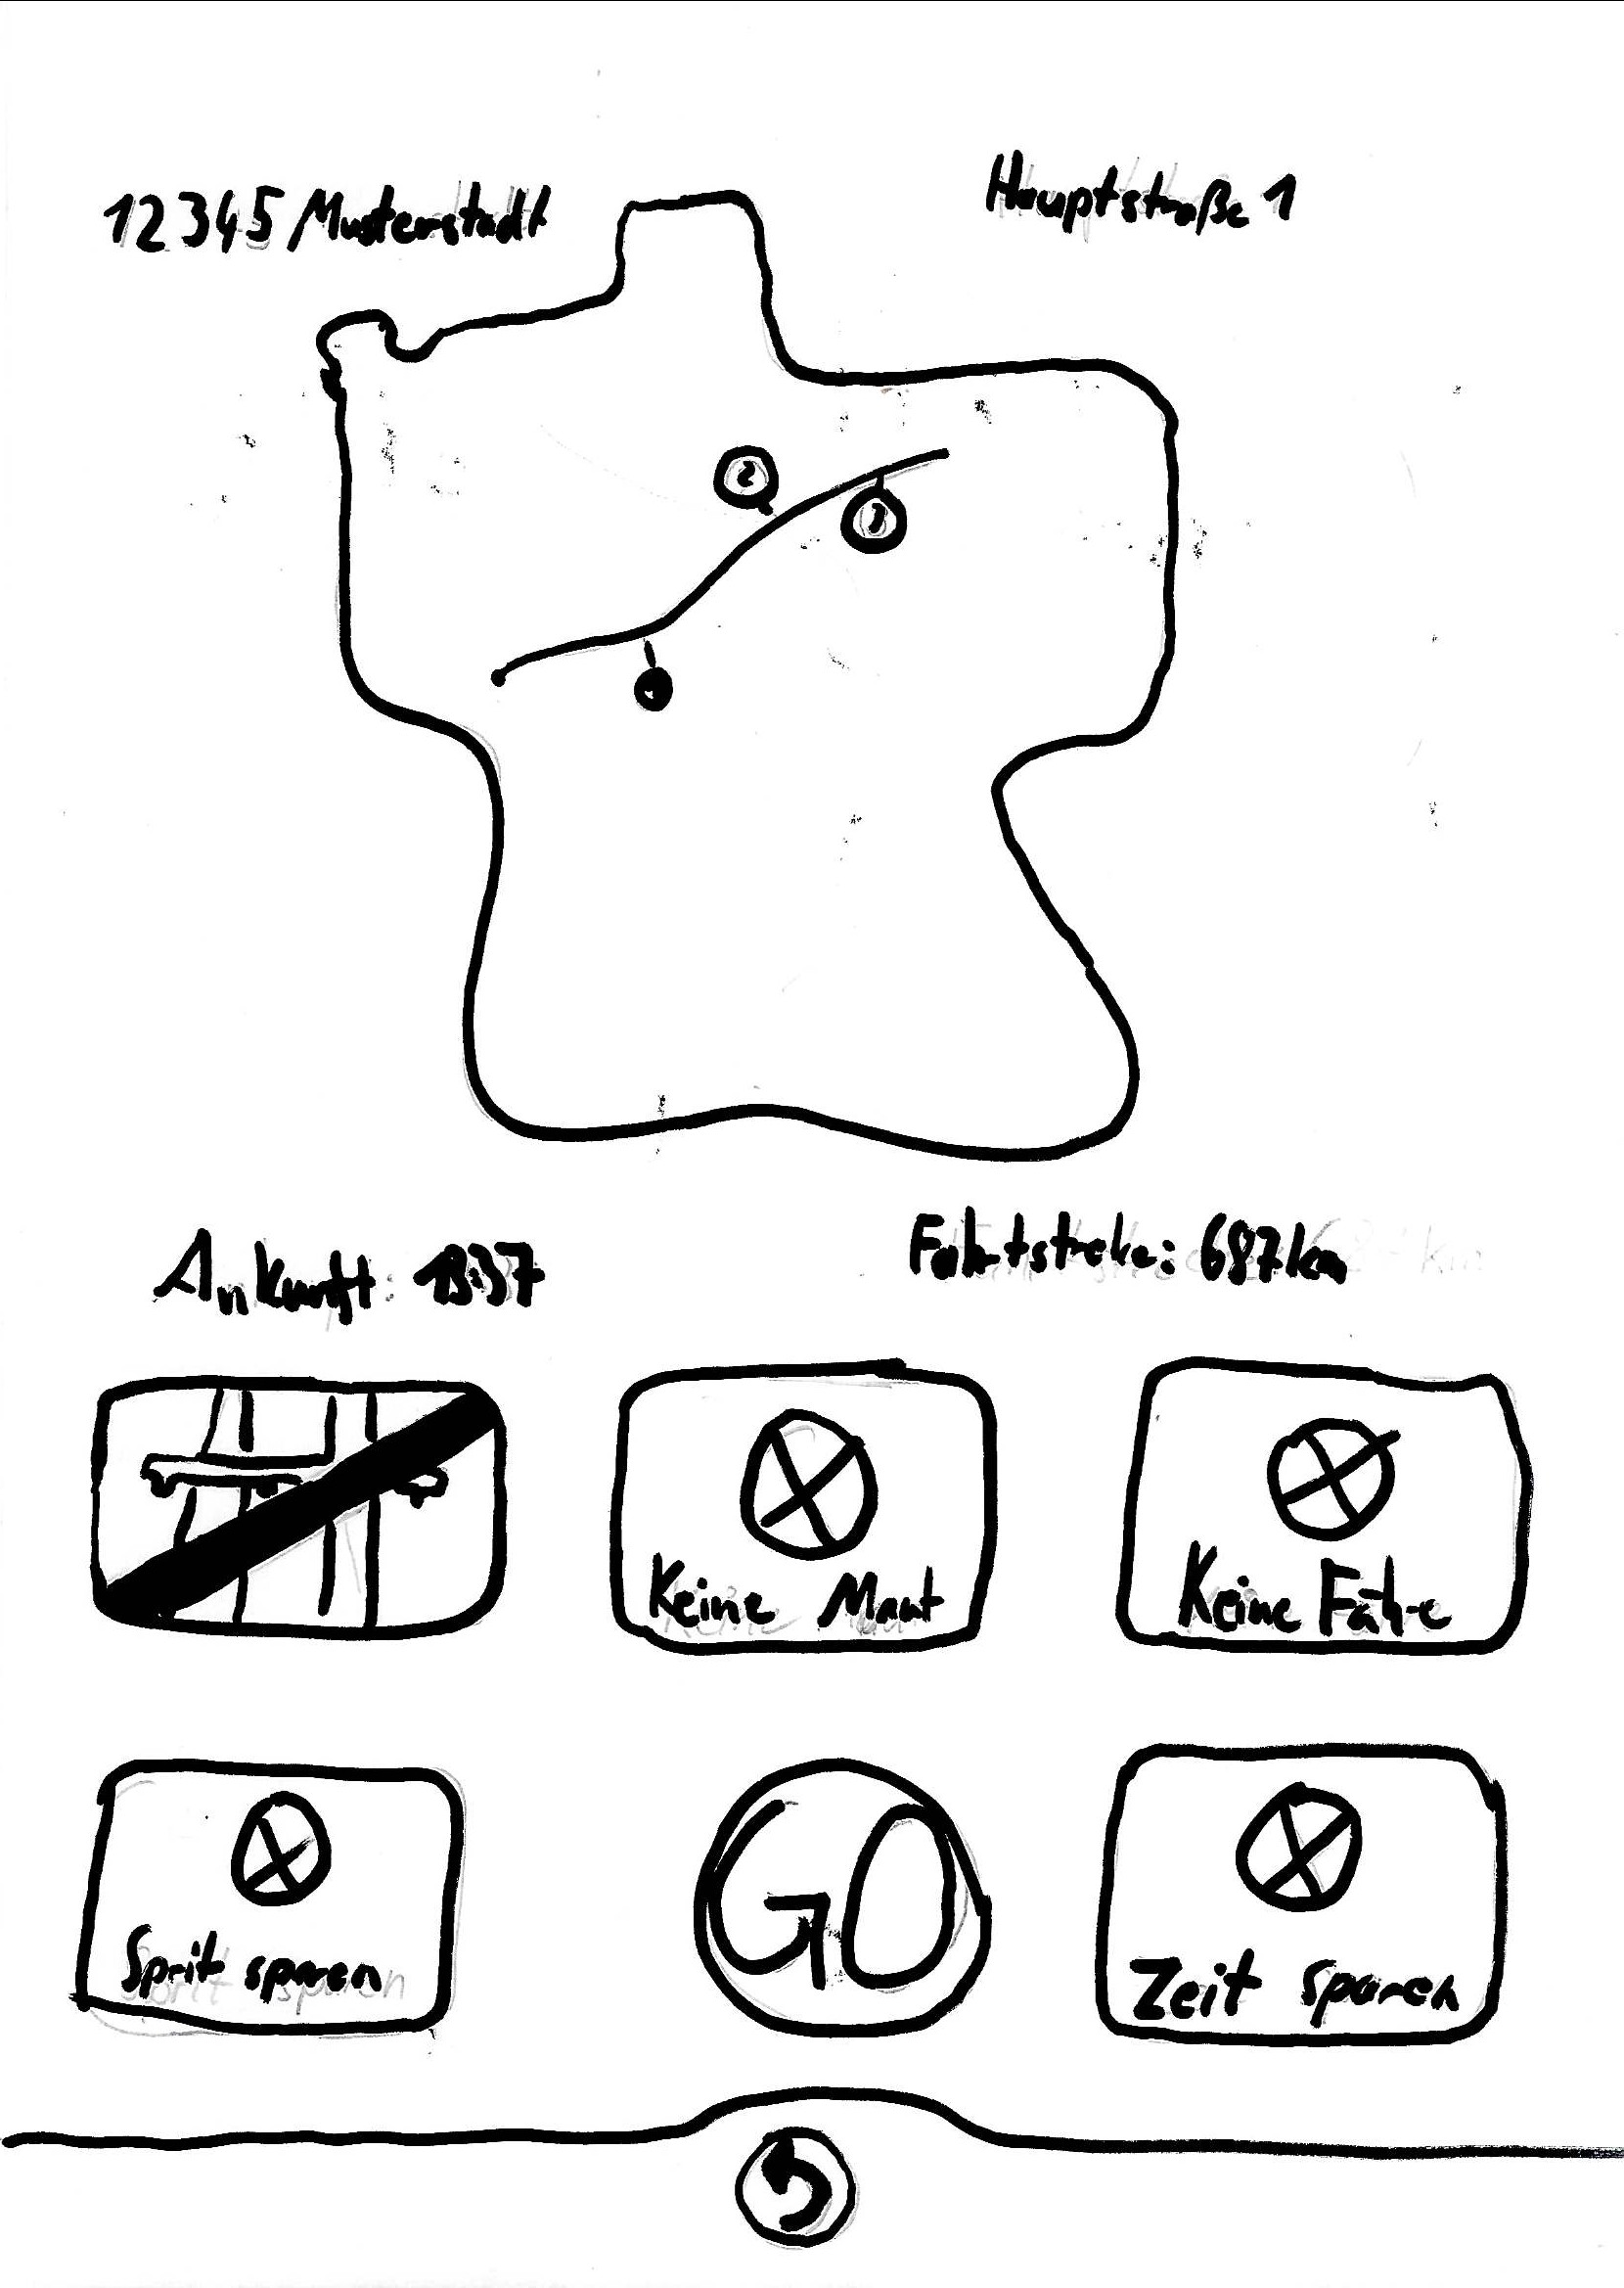 12345 Musterstadt
Hauptstraße 1
2
1
Ankunft: 13:37
Fahrtstreke: 687km
Keine Maut
Keine Fähre
Sprit sparen
GO
Zeit sparen